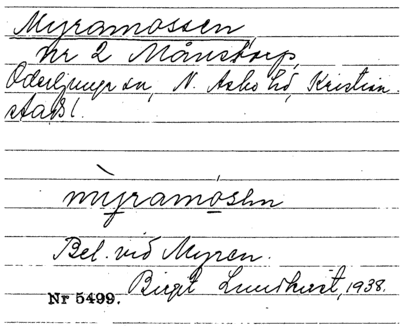 Myramossen,
nr 2 Månstorp,
Oderljunga sn, N. Åsbo hd, Kristian-
stads l.
mỳramósen
Bel. vid Myren.
Birgit Lundkvist, 1938.
Nr 5499.